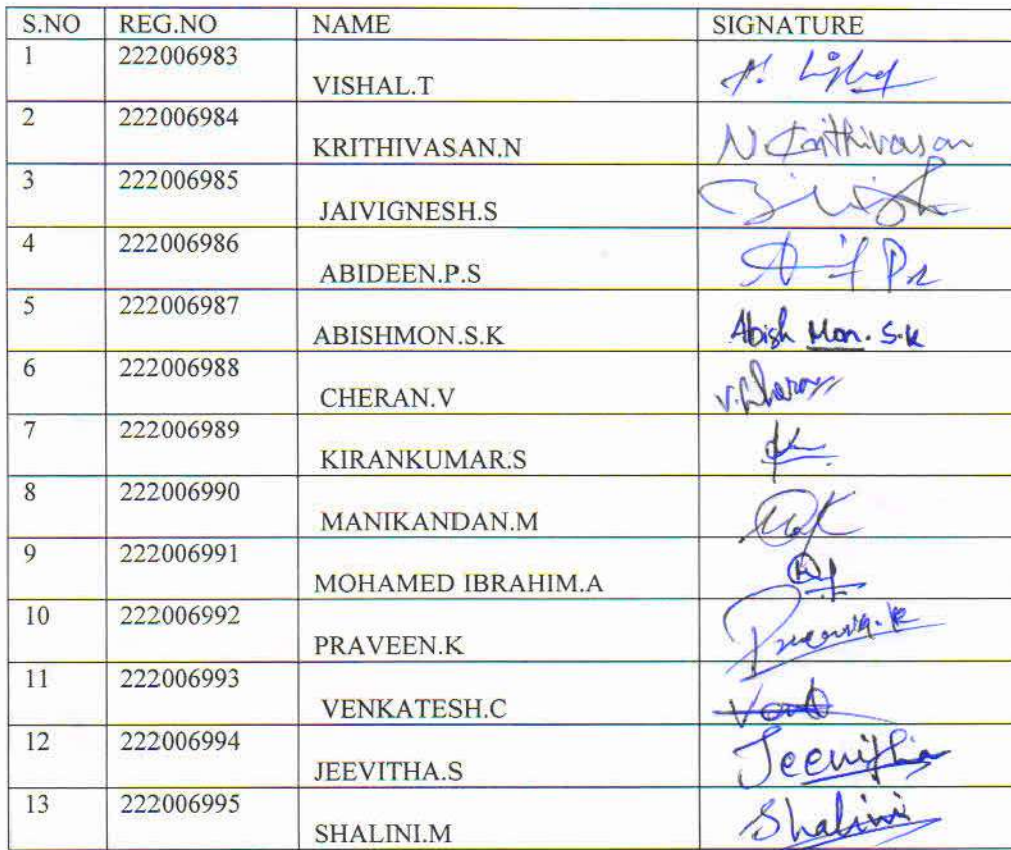 S.NO REG.NO NAME SIGNATURE
1 222006983 VISHAL.T
2 222006984 KRITHIVASAN.N N Krithivasan
3 222006985 JAIVIGNESH.S
4 222006986 ABIDEEN.P.S
5 222006987 ABISHMON.S.K Abish Mon. S.K
6 222006988 CHERAN.V
7 222006989 KIRANKUMAR.S
8 222006990 MANIKANDAN.M
9 222006991 MOHAMED IBRAHIM.A
10 222006992 PRAVEEN.K
11 222006993 VENKATESH.C
12 222006994 JEEVITHA.S Jeevitha
13 222006995 SHALINI.M Shalini